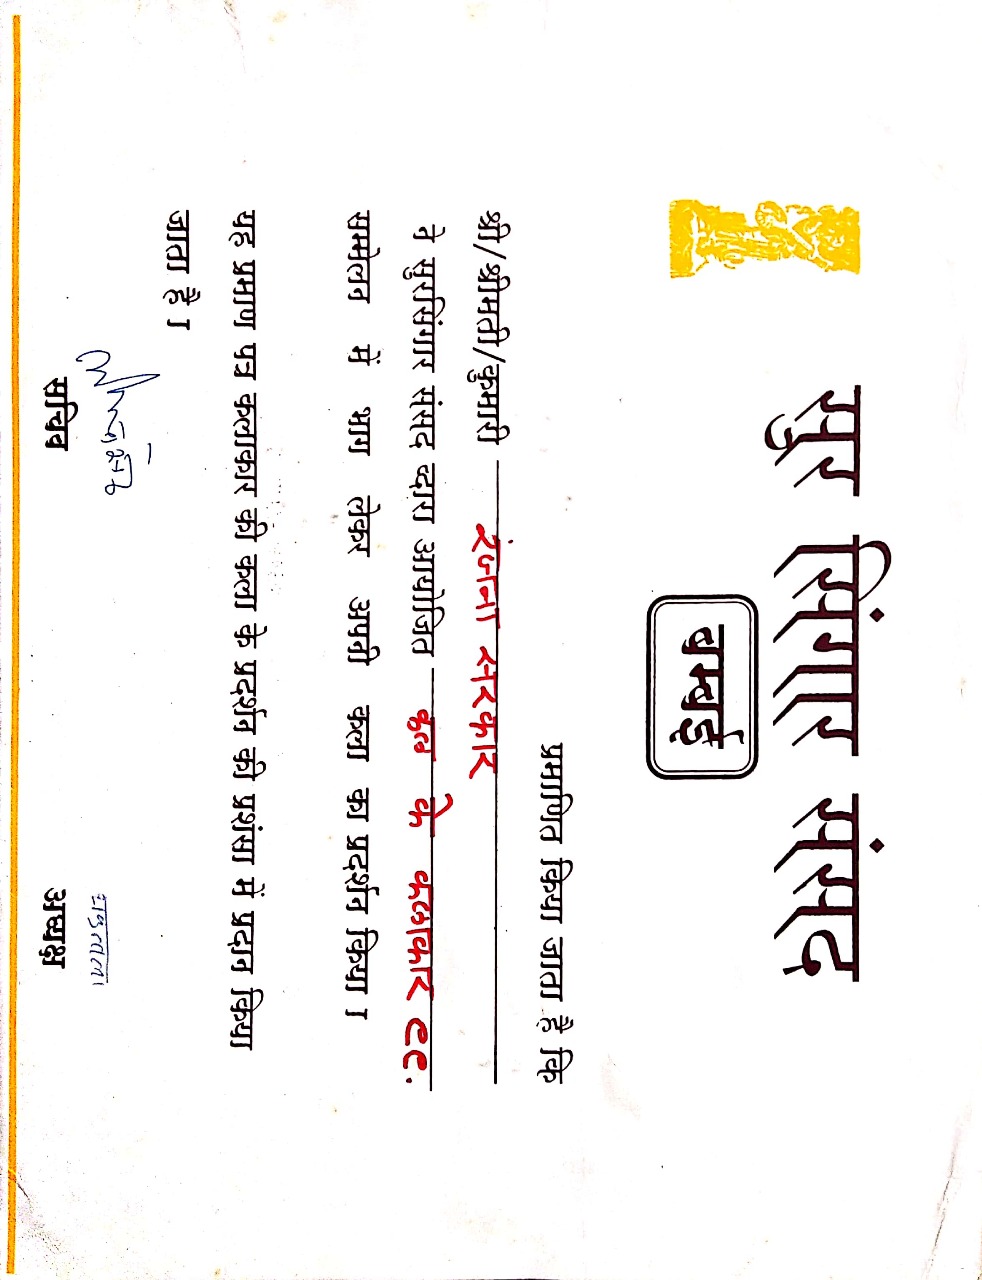 सुर सिंगार संसद
बम्बई
प्रमाणित किया जाता है कि
श्री/श्रीमती/कुमारी रंजना सरकार
ने सुरसिंगार संसद द्वारा आयोजित कल के कलाकार ९९.
सम्मेलन में भाग लेकर अपनी कला का प्रदर्शन किया ।
यह प्रमाण पत्र कलाकार की कला के प्रदर्शन की प्रशंसा में प्रदान किया
जाता है ।
सचिव अध्यक्ष